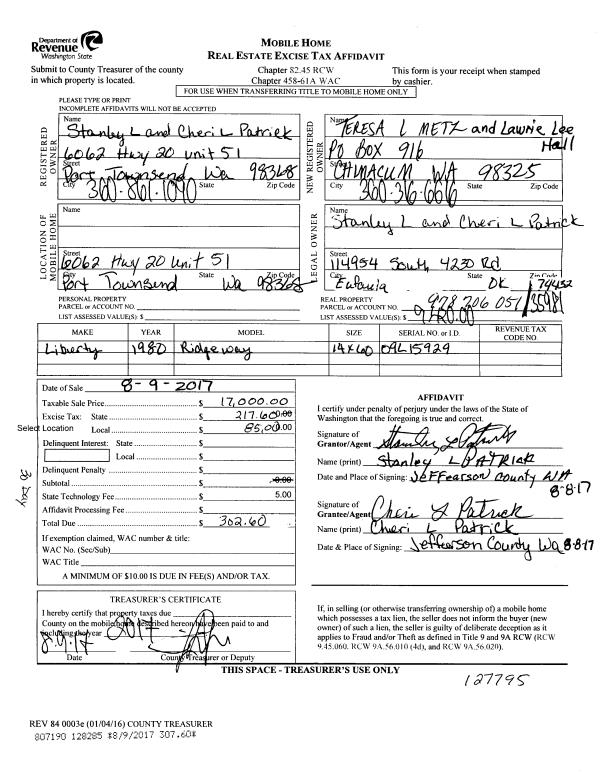 Department of
Revenue
Washington State
MOBILE HOME
REAL ESTATE EXCISE TAX AFFIDAVIT
Submit to County Treasurer of the county
in which property is located.
Chapter 82.45 RCW
Chapter 458-61A WAC
This form is your receipt when stamped
by cashier.
FOR USE WHEN TRANSFERRING TITLE TO MOBILE HOME ONLY
PLEASE TYPE OR PRINT
INCOMPLETE AFFIDAVITS WILL NOT BE ACCEPTED
REGISTERED OWNER
Name
Stanley L and Cheri L Patrick
6062 Hwy 20 unit 51
Street
Port Townsend Wa 98368
City State Zip Code
360-861-1090
NEW REGISTERED OWNER
Name
TERESA L METZ and Lawrie Lee
Hall
PO BOX 916
Street
CHIMACUM WA 98325
City State Zip Code
LOCATION OF MOBILE HOME
Name
Street
6062 Hwy 20 Unit 51
City State Zip Code
Port Townsend Wa 98368
LEGAL OWNER
Name
Stanley L and Cheri L Patrick
Street
114954 South 4230 Rd
City State Zip Code
Eufaula OK 74432
PERSONAL PROPERTY
PARCEL or ACCOUNT NO.
LIST ASSESSED VALUE(S): $
REAL PROPERTY
PARCEL or ACCOUNT NO. 978 206 051 / 35981
LIST ASSESSED VALUE(S): $
MAKE YEAR MODEL SIZE SERIAL NO. or I.D. REVENUE TAX CODE NO.
Liberty 1980 Ridgeway 14x60 09L15929
Date of Sale 8-9-2017
Taxable Sale Price $ 17,000.00
Excise Tax: State $ 217.60 0.00
Select Location Local $ 85.00 0.00
Delinquent Interest: State $
Local $
Delinquent Penalty $
Subtotal $ 0.00
State Technology Fee $ 5.00
Affidavit Processing Fee $
Total Due $ 302.60
If exemption claimed, WAC number & title:
WAC No. (Sec/Sub)
WAC Title
A MINIMUM OF $10.00 IS DUE IN FEE(S) AND/OR TAX.
AFFIDAVIT
I certify under penalty of perjury under the laws of the State of
Washington that the foregoing is true and correct.
Signature of
Grantor/Agent Stanley L Patrick
Name (print) Stanley L PATRICK
Date and Place of Signing: Jeffearson County WA
8-8-17
Signature of
Grantee/Agent Cheri L Patrick
Name (print) Cheri L Patrick
Date & Place of Signing: Jefferson County Wa 8-8-17
TREASURER'S CERTIFICATE
I hereby certify that property taxes due
County on the mobile home described hereon have been paid to and
including the year 2017
8-9-17
Date County Treasurer or Deputy
If, in selling (or otherwise transferring ownership of) a mobile home
which possesses a tax lien, the seller does not inform the buyer (new
owner) of such a lien, the seller is guilty of deliberate deception as it
applies to Fraud and/or Theft as defined in Title 9 and 9A RCW (RCW
9.45.060. RCW 9A.56.010 (4d), and RCW 9A.56.020).
THIS SPACE - TREASURER'S USE ONLY
127795
REV 84 0003e (01/04/16) COUNTY TREASURER
807190 128285 *8/9/2017 307.60*